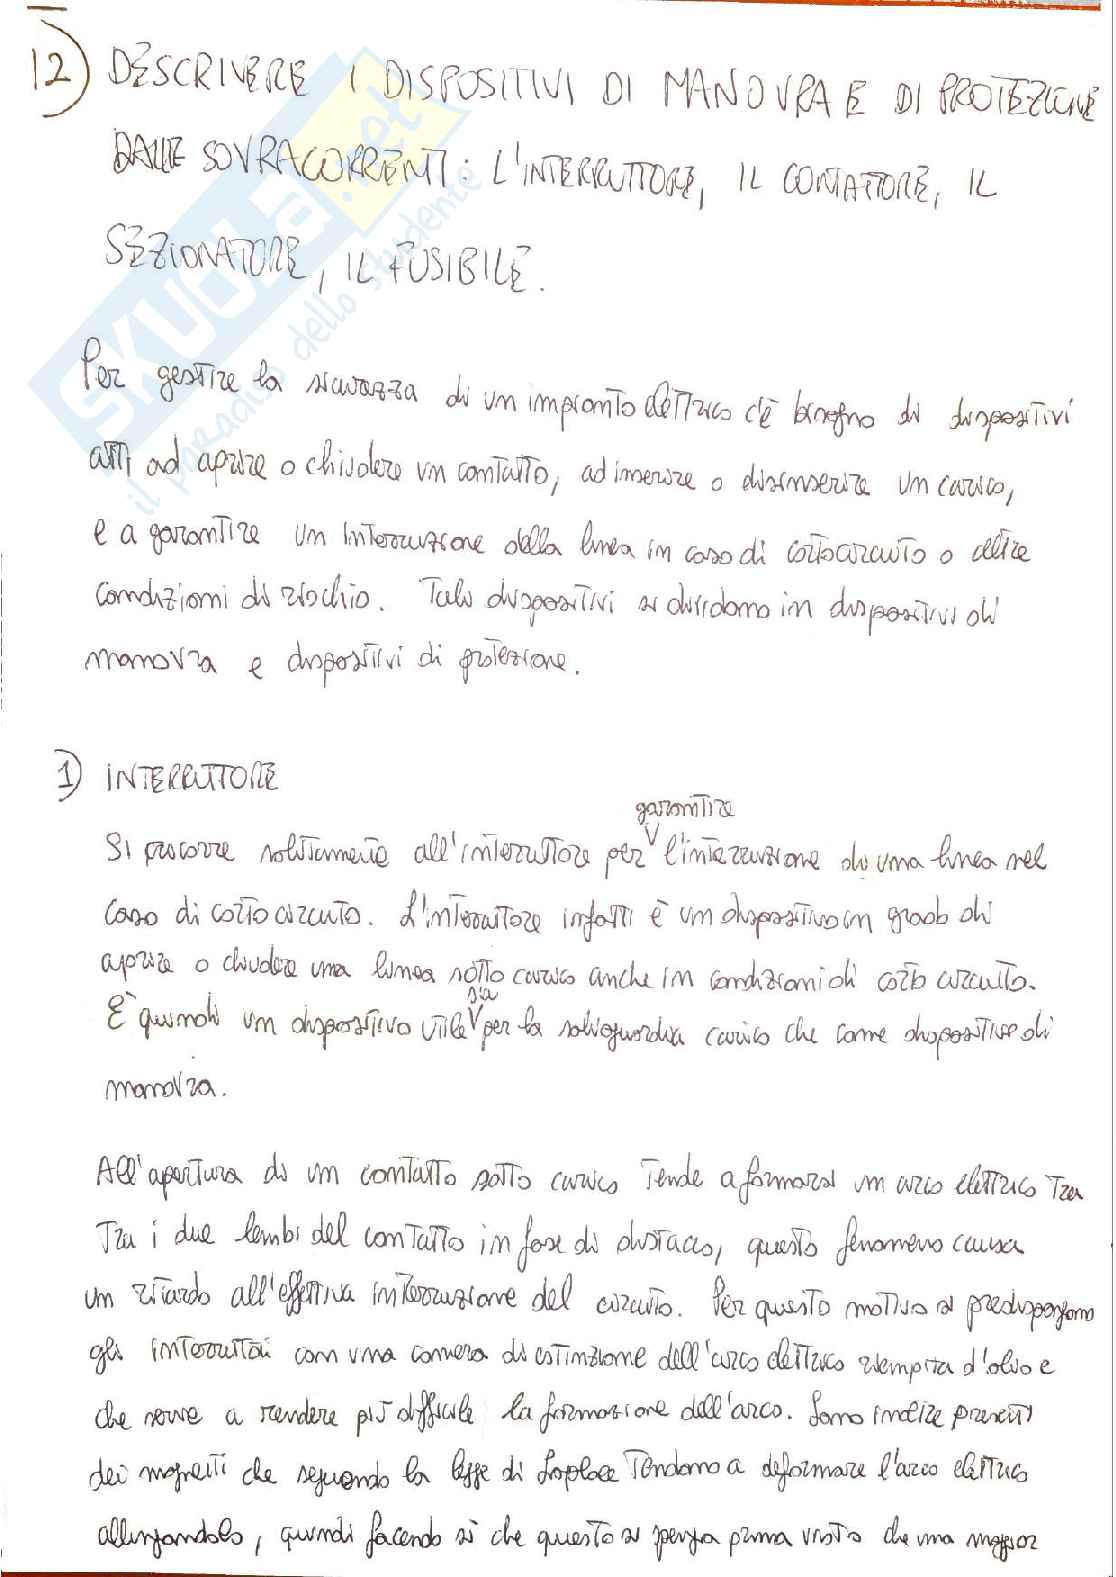 12) DESCRIVERE I DISPOSITIVI DI MANOVRA E DI PROTEZIONE
DALLE SOVRACORRENTI: L'INTERRUTTORE, IL CONTATTORE, IL
SEZIONATORE, IL FUSIBILE.
SKUOLA.net
il paradiso dello studente
Per gestire la sicurezza di un impianto elettrico c'è bisogno di dispositivi
atti ad aprire o chiudere un contatto, ad inserire o disinserire un carico,
e a garantire un interruzione della linea in caso di cortocircuito o altre
condizioni di rischio. Tali dispositivi si dividono in dispositivi di
manovra e dispositivi di protezione.
1) INTERRUTTORE
garantire
Si ricorre solitamente all'interruttore per l'interruzione di una linea nel
caso di cortocircuito. L'interruttore infatti è un dispositivo in grado di
aprire o chiudere una linea sotto carico anche in condizioni di corto circuito.
sia
È quindi un dispositivo utile per la salvaguardia carico che come dispositivo di
manovra.
All'apertura di un contatto sotto carico tende a formarsi un arco elettrico tra
tra i due lembi del contatto in fase di distacco, questo fenomeno causa
un ritardo all'effettiva interruzione del circuito. Per questo motivo si predispongono
gli interruttori con una camera di estinzione dell'arco elettrico riempita d'olio e
che serve a rendere più difficile la formazione dell'arco. Sono inoltre presenti
dei magneti che seguendo la legge di Laplace tendono a deformare l'arco elettrico
allungandolo, quindi facendo sì che questo si spenga prima visto che una maggior